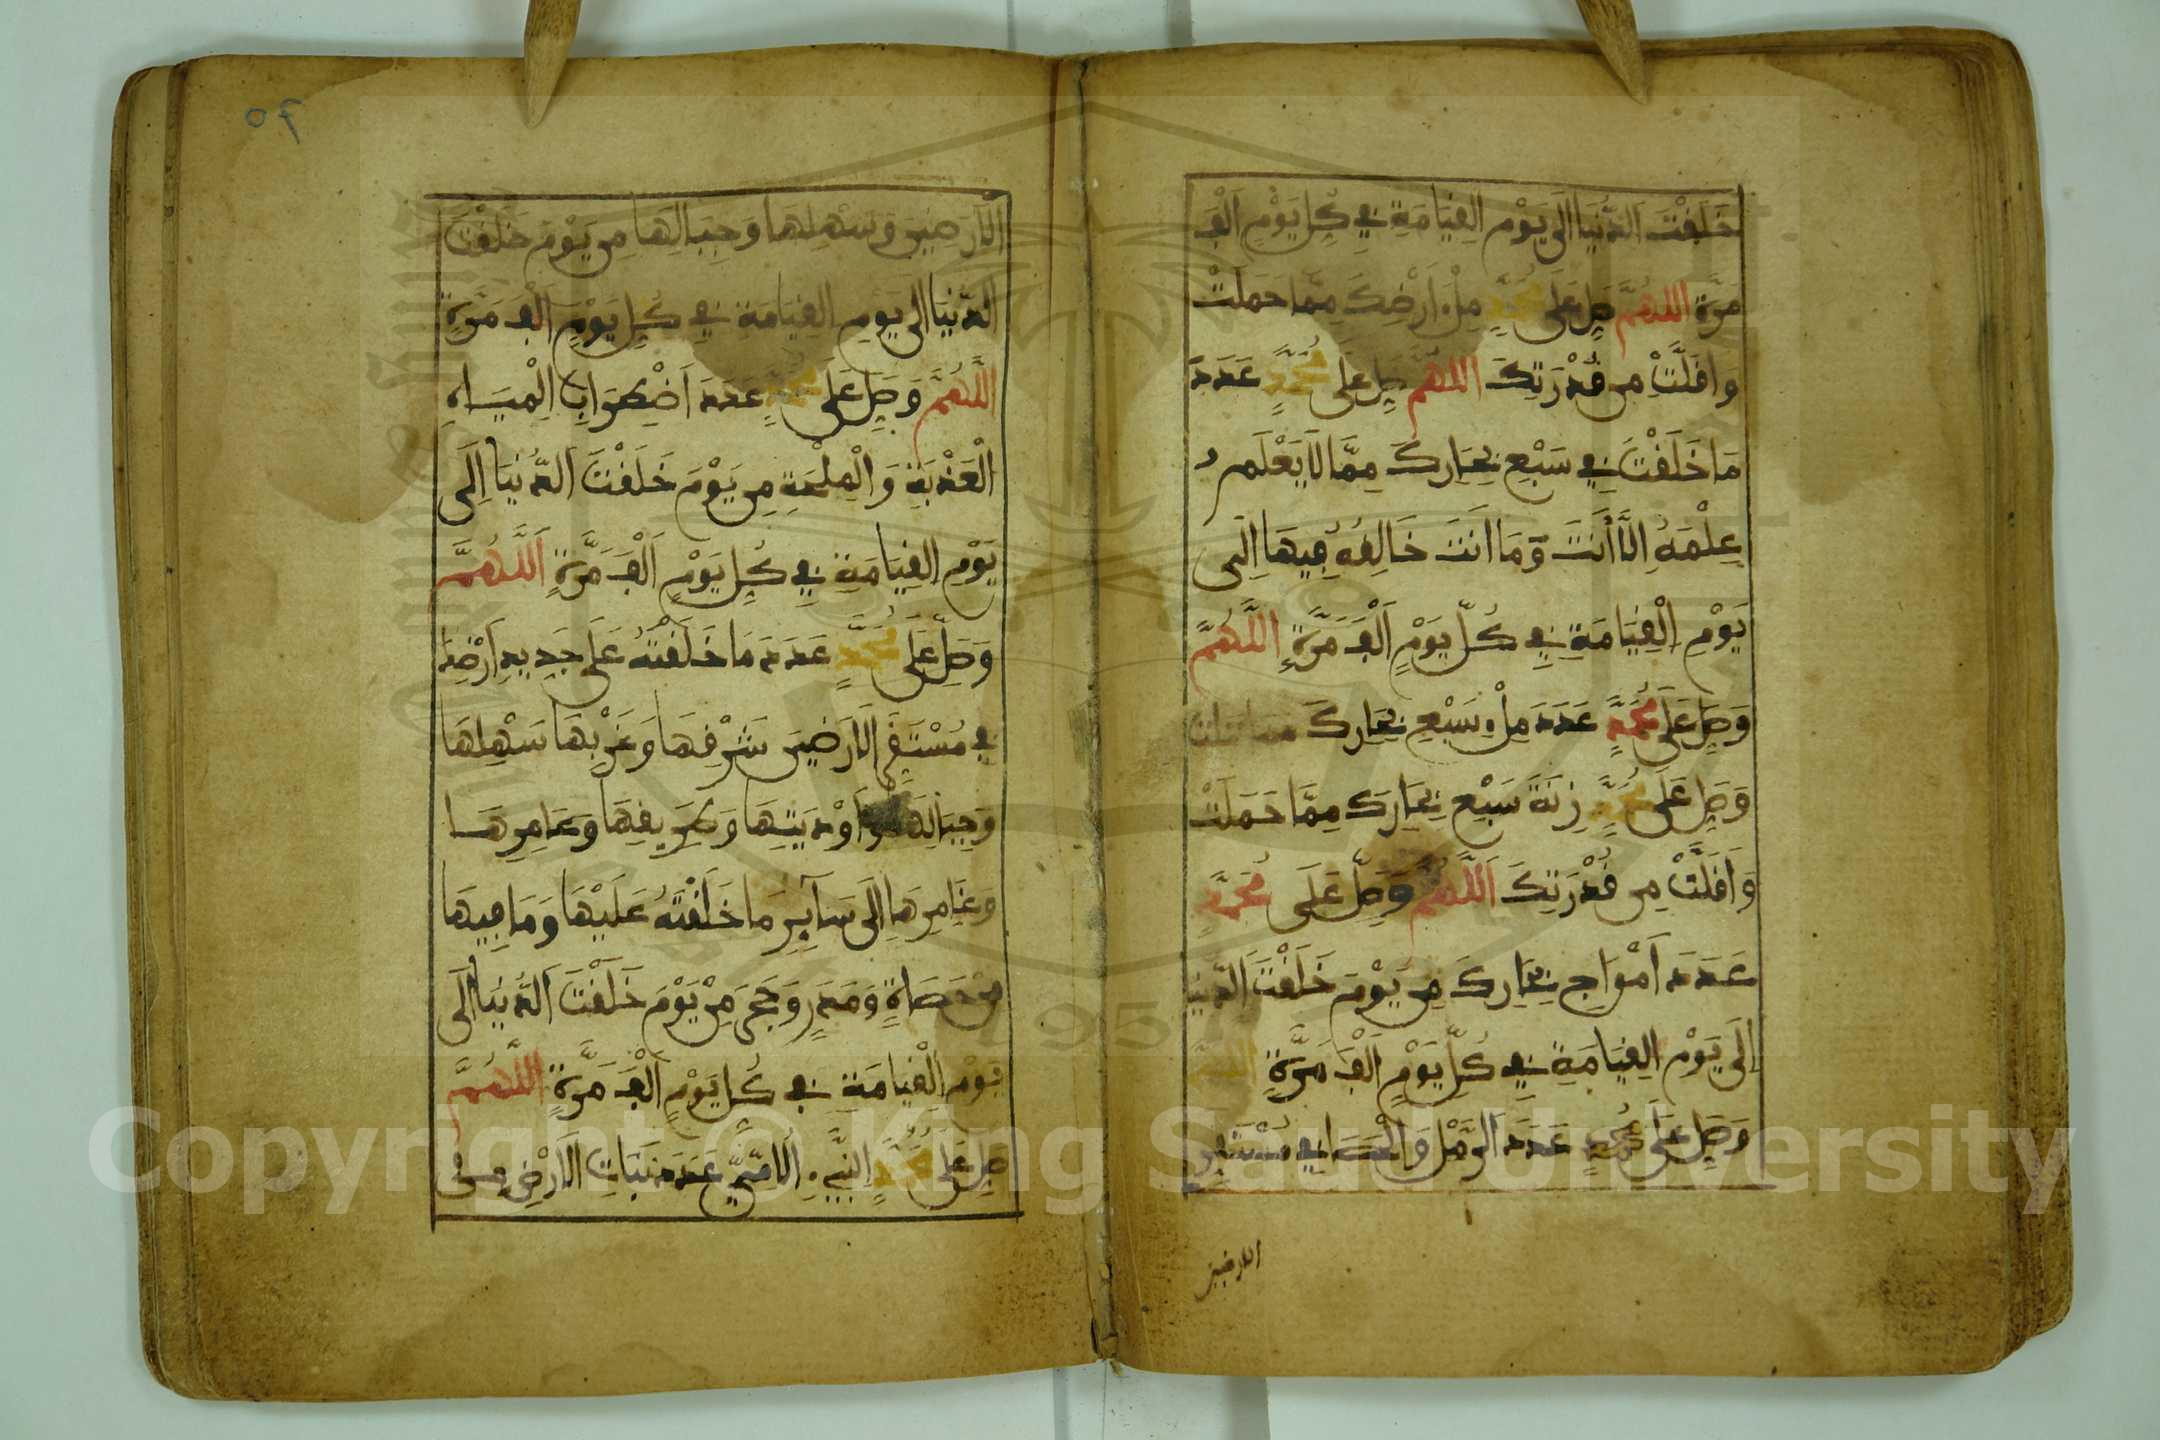 خَلَقْتَ الدُّنْيَا اِلَى يَوْمِ الْقِيَامَةِ فِي كُلِّ يَوْمٍ اَلْفَ
مَرَّةٍ اللَّهُمَّ صَلِّ عَلَى مُحَمَّدٍ مِلْءَ اَرْضِكَ مِمَّا حَمَلَتْ
وَاَقَلَّتْ مِن قُدْرَتِكَ اللَّهُمَّ صَلِّ عَلَى مُحَمَّدٍ عَدَدَ
مَا خَلَقْتَ فِي سَبْعِ بِحَارِكَ مِمَّا لَا يَعْلَمُ
عِلْمَهُ اِلَّا أَنتَ وَمَا اَنتَ خَالِقُهُ فِيهَا اِلَى
يَوْمِ الْقِيَامَةِ فِي كُلِّ يَوْمٍ اَلْفَ مَرَّةٍ اللَّهُمَّ
وَصَلِّ عَلَى مُحَمَّدٍ عَدَدَ مِلْءِ سَبْعِ بِحَارِكَ
وَصَلِّ عَلَى مُحَمَّدٍ زِنَةَ سَبْعِ بِحَارِكَ مِمَّا حَمَلَتْ
وَاَقَلَّتْ مِن قُدْرَتِكَ اَللَّهُمَّ وَصَلِّ عَلَى مُحَمَّدٍ
عَدَدَ اَمْوَاجِ بِحَارِكَ مِن يَوْمَ خَلَقْتَ الدُّنْيَا
اِلَى يَوْمِ الْقِيَامَةِ فِي كُلِّ يَوْمٍ اَلْفَ مَرَّةٍ اللَّهُمَّ
وَصَلِّ عَلَى مُحَمَّدٍ عَدَدَ الرَّمْلِ وَالْحَصَا فِي مُسْتَقَرِّ
الارضين
٥٦
الْاَرَضِينَ وَسَهْلِهَا وَجِبَالِهَا مِن يَوْمَ خَلَقْتَ
الدُّنْيَا اِلَى يَوْمِ الْقِيَامَةِ فِي كُلِّ يَوْمٍ اَلْفَ مَرَّةٍ
اللَّهُمَّ وَصَلِّ عَلَى مُحَمَّدٍ عَدَدَ اَضْطِرَابِ الْمِيَاهِ
الْعَذْبَةِ وَالْمِلْحَةِ مِن يَوْمَ خَلَقْتَ الدُّنْيَا اِلَى
يَوْمِ الْقِيَامَةِ فِي كُلِّ يَوْمٍ اَلْفَ مَرَّةٍ اَللَّهُمَّ
وَصَلِّ عَلَى مُحَمَّدٍ عَدَدَ مَا خَلَقْتَهُ عَلَى جَدِيدِ اَرْضِكَ
فِي مُسْتَقَرِّ الْاَرَضِينَ شَرْقِهَا وَغَرْبِهَا سَهْلِهَا
وَجِبَالِهَا وَاَوْدِيَتِهَا وَطَرِيقِهَا وَعَامِرِهَا
وَغَامِرِهَا اِلَى سَآئِرِ مَا خَلَقْتَهُ عَلَيْهَا وَمَا فِيهَا
مِنْ حَصَاةٍ وَمَدَرٍ وَحَجَرٍ مِنْ يَوْمَ خَلَقْتَ الدُّنْيَا اِلَى
يَوْمِ الْقِيَامَةِ فِي كُلِّ يَوْمٍ اَلْفَ مَرَّةٍ اللَّهُمَّ
صَلِّ عَلَى مُحَمَّدٍ النَّبِيِّءِ الْاُمِّيِّ عَدَدَ نَبَاتِ الْاَرْضِ مِن
Copyright © King Saud University
1957